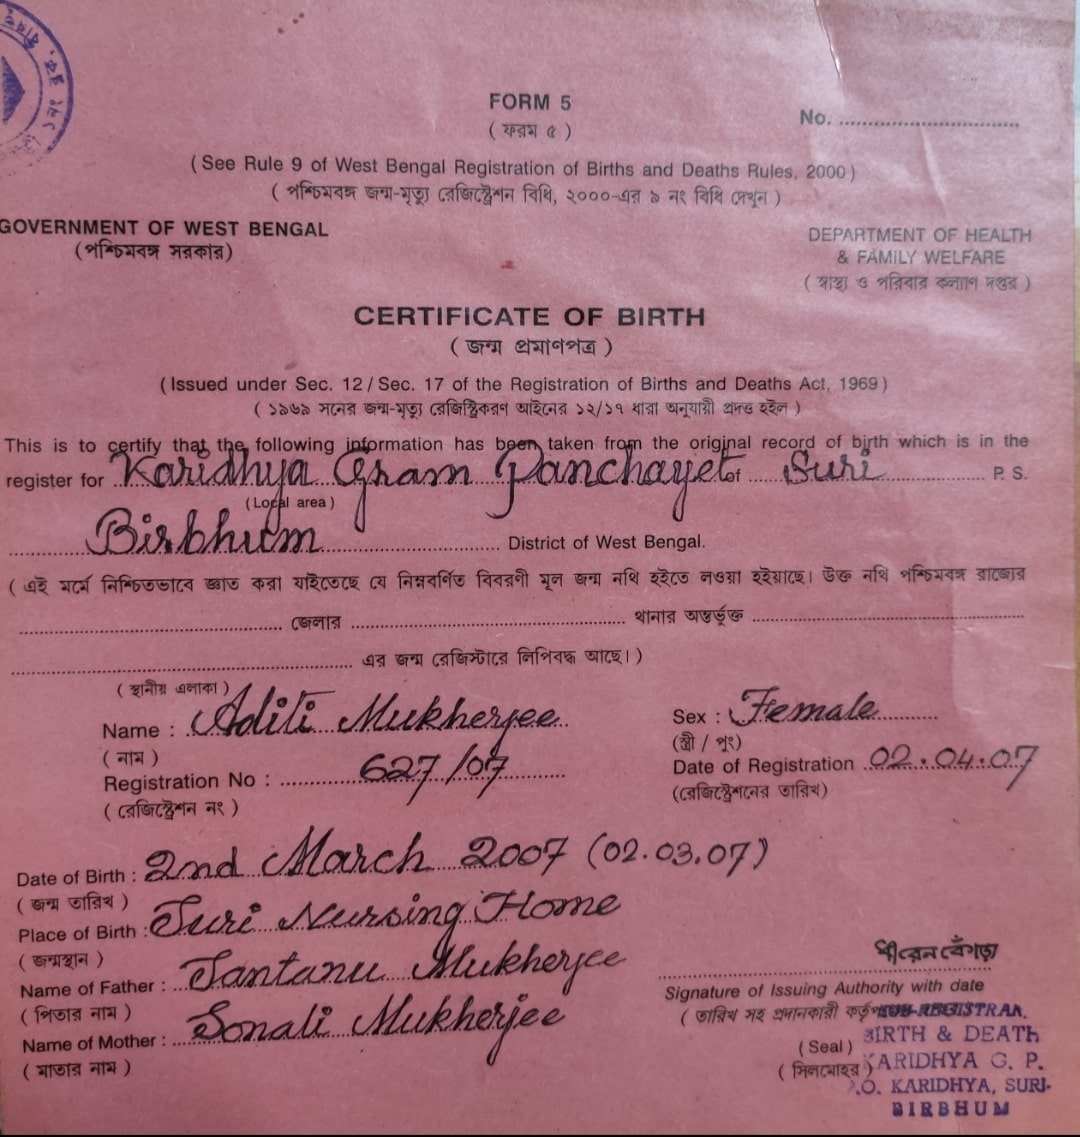 FORM 5
( ফরম ৫ )
No. ..............................
( See Rule 9 of West Bengal Registration of Births and Deaths Rules, 2000 )
( পশ্চিমবঙ্গ জন্ম-মৃত্যু রেজিষ্ট্রেশন বিধি, ২০০০-এর ৯ নং বিধি দেখুন )
GOVERNMENT OF WEST BENGAL
(পশ্চিমবঙ্গ সরকার)
DEPARTMENT OF HEALTH
& FAMILY WELFARE
( স্বাস্থ্য ও পরিবার কল্যাণ দপ্তর )
CERTIFICATE OF BIRTH
( জন্ম প্রমাণপত্র )
(Issued under Sec. 12 / Sec. 17 of the Registration of Births and Deaths Act, 1969)
( ১৯৬৯ সনের জন্ম-মৃত্যু রেজিষ্ট্রিকরণ আইনের ১২/১৭ ধারা অনুযায়ী প্রদত্ত হইল )
This is to certify that the following information has been taken from the original record of birth which is in the
register for Karidhya Gram Panchayet of Suri P. S.
(Local area)
Birbhum District of West Bengal.
( এই মর্মে নিশ্চিতভাবে জ্ঞাত করা যাইতেছে যে নিম্নবর্ণিত বিবরণী মূল জন্ম নথি হইতে লওয়া হইয়াছে। উক্ত নথি পশ্চিমবঙ্গ রাজ্যের
.............................. জেলার .............................. থানার অন্তর্ভুক্ত ..............................
.............................. এর জন্ম রেজিস্টারে লিপিবদ্ধ আছে। )
( স্থানীয় এলাকা )
Name : Aditi Mukherjee Sex : Female
( নাম ) (স্ত্রী / পুং)
Registration No : 627/07 Date of Registration 02.04.07
( রেজিষ্ট্রেশন নং ) (রেজিষ্ট্রেশনের তারিখ)
Date of Birth : 2nd March 2007 (02.03.07)
( জন্ম তারিখ )
Place of Birth : Suri Nursing Home
( জন্মস্থান )
Name of Father : Santanu Mukherjee
( পিতার নাম )
Name of Mother : Sonali Mukherjee
( মাতার নাম )
Signature of Issuing Authority with date
( তারিখ সহ প্রদানকারী
(Seal)
( সিলমোহর )
SUB-REGISTRAR,
BIRTH & DEATH
KARIDHYA G. P.
P.O. KARIDHYA, SURI-
BIRBHUM